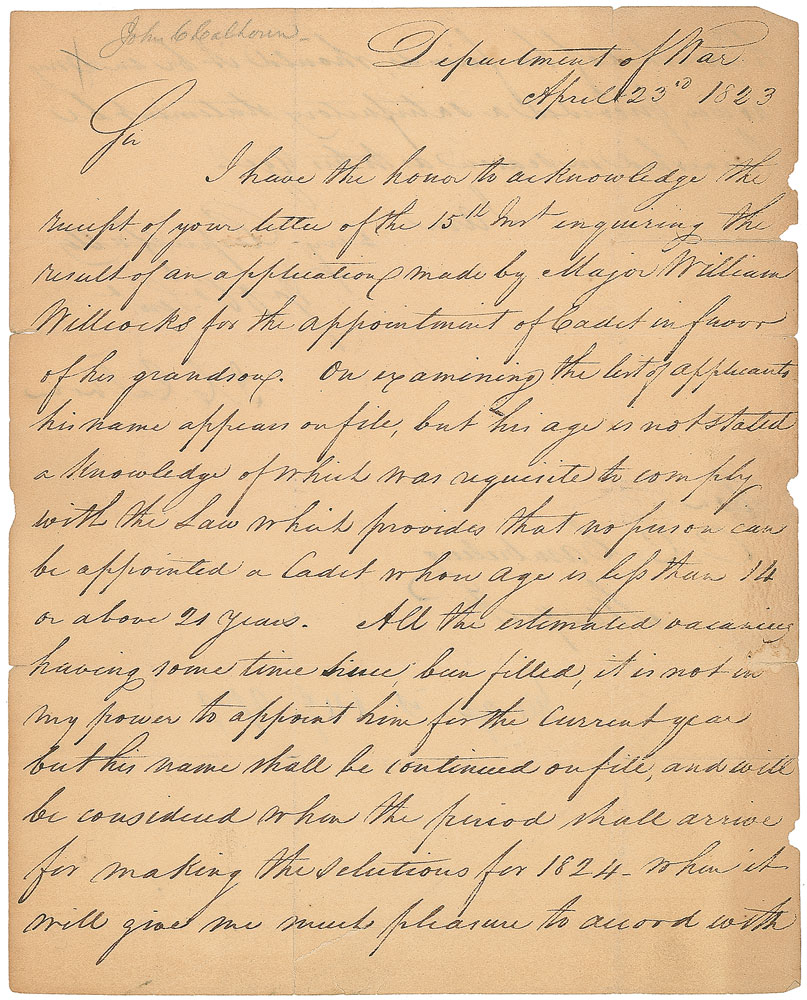 John C Calhoun
Department of War
April 23rd 1823
Sir
I have the honor to acknowledge the
receipt of your letter of the 15th Inst enquiring the
result of an application made by Major William
Willcocks for the appointment of Cadet in favor
of his grandson. On examining the list of applicants
his name appears on file, but his age is not stated
a knowledge of which was requisite to comply
with the Law which provides that no person can
be appointed a Cadet whose age is less than 14
or above 21 years. All the estimated vacancies
having some time since, been filled, it is not in
my power to appoint him for the current year
but his name shall be continued on file, and will
be considered when the period shall arrive
for making the selections for 1824 - when it
will give me much pleasure to accord with